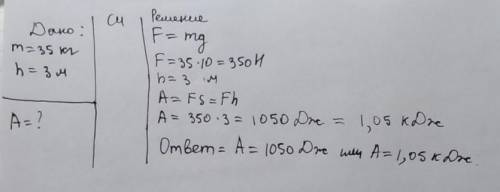 Дано:
m=35 кг
h=3 м
A=?
СИ
Решение
F=mg
F=35·10=350Н
h=3 м
A=FS=Fh
A=350·3=1050 Дж = 1,05 кДж
Ответ= A=1050 Дж или A=1,05 кДж.